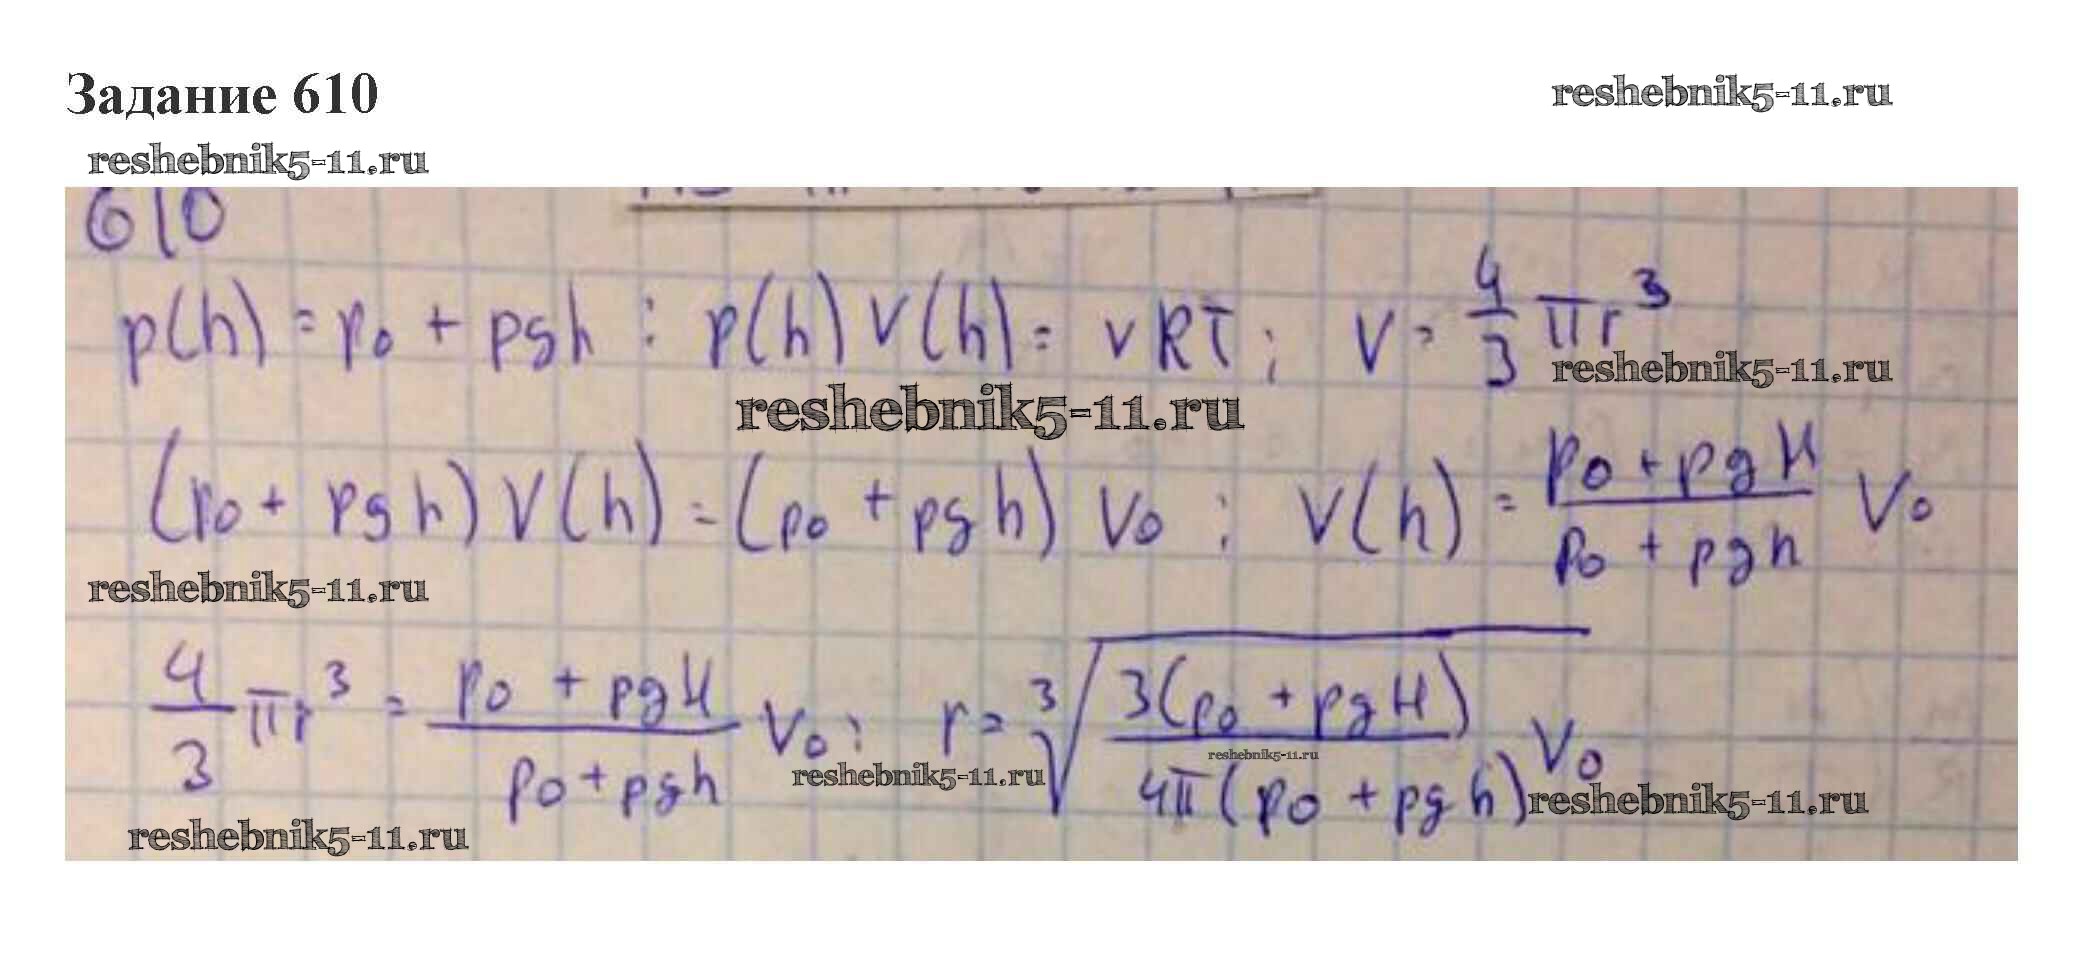 Задание 610
reshebnik5-11.ru
reshebnik5-11.ru
610
p(h) = p₀ + ρgh ; p(h) V(h) = νRT ; V = 4/3 πr³
reshebnik5-11.ru
reshebnik5-11.ru
(p₀ + ρgh) V(h) = (p₀ + ρgh) V₀ ; V(h) = (p₀ + ρgH)/(p₀ + ρgh) V₀
reshebnik5-11.ru
4/3 πr³ = (p₀ + ρgH)/(p₀ + ρgh) V₀ ; r = ³√(3(p₀ + ρgH)/(4π(p₀ + ρgh)) V₀)
reshebnik5-11.ru
reshebnik5-11.ru
reshebnik5-11.ru
reshebnik5-11.ru